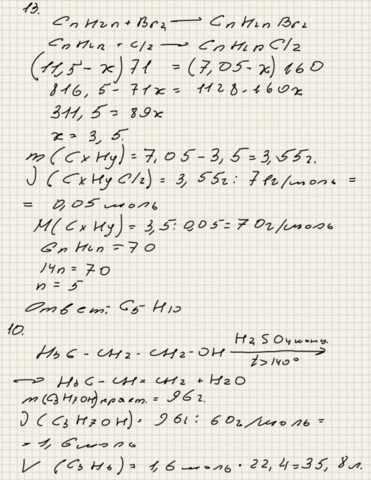 13.
CnH2n + Br2 → CnH2nBr2
CnH2n + Cl2 → CnH2nCl2
(11,5 - x) 71 = (7,05 - x) 160
816,5 - 71x = 1128 - 160x
311,5 = 89x
x = 3,5.
m(CxHy) = 7,05 - 3,5 = 3,55г.
ν(CxHyCl2) = 3,55г : 71г/моль =
= 0,05 моль
M(CxHy) = 3,5 : 0,05 = 70г/моль
CnH2n = 70
14n = 70
n = 5
Ответ: C5H10
10.
H3C - CH2 - CH2 - OH H2SO4 конц. t>140° →
→ H3C - CH = CH2 + H2O
m(C3H7OH) практ. = 96г.
ν(C3H7OH) = 96г : 60г/моль =
= 1,6 моль
V (C3H6) = 1,6 моль · 22,4 = 35,8л.